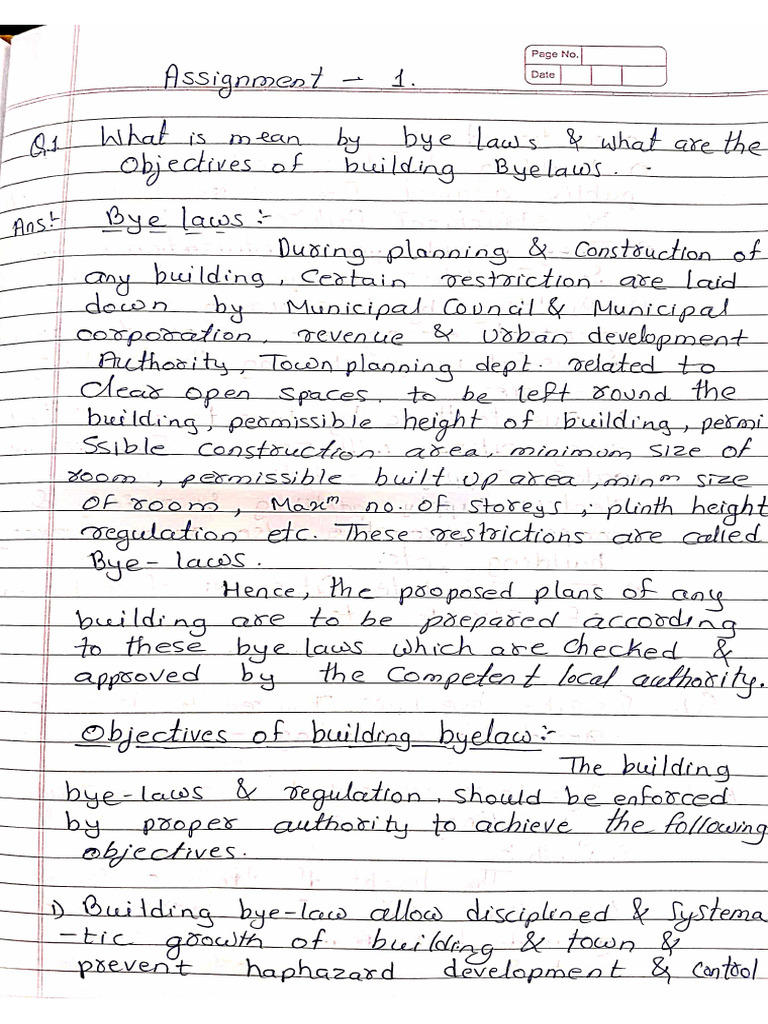 Page No.
Date
Assignment - 1.
Q.1 What is mean by bye laws & what are the
Objectives of building Byelaws. -
Ans:- Bye laws :-
During planning & Construction of
any building, Certain restriction are laid
down by Municipal Council & Municipal
corporation, revenue & Urban development
Authority, Town planning dept. related to
Clear open spaces, to be left round the
building, permissible height of building, permi
ssible construction area, minimum size of
room, permissible built up area, minm size
of room, Maxm no. of storeys, plinth height
regulation etc. These restrictions are called
Bye-laws.
Hence, the proposed plans of any
building are to be prepared according
to these bye laws which are checked &
approved by the Competent local authority.
Objectives of building byelaw:-
The building
bye-laws & regulation, should be enforced
by proper authority to achieve the following
objectives.
1) Building bye-law allow disciplined & systema
-tic growth of building & town &
prevent haphazard development & control